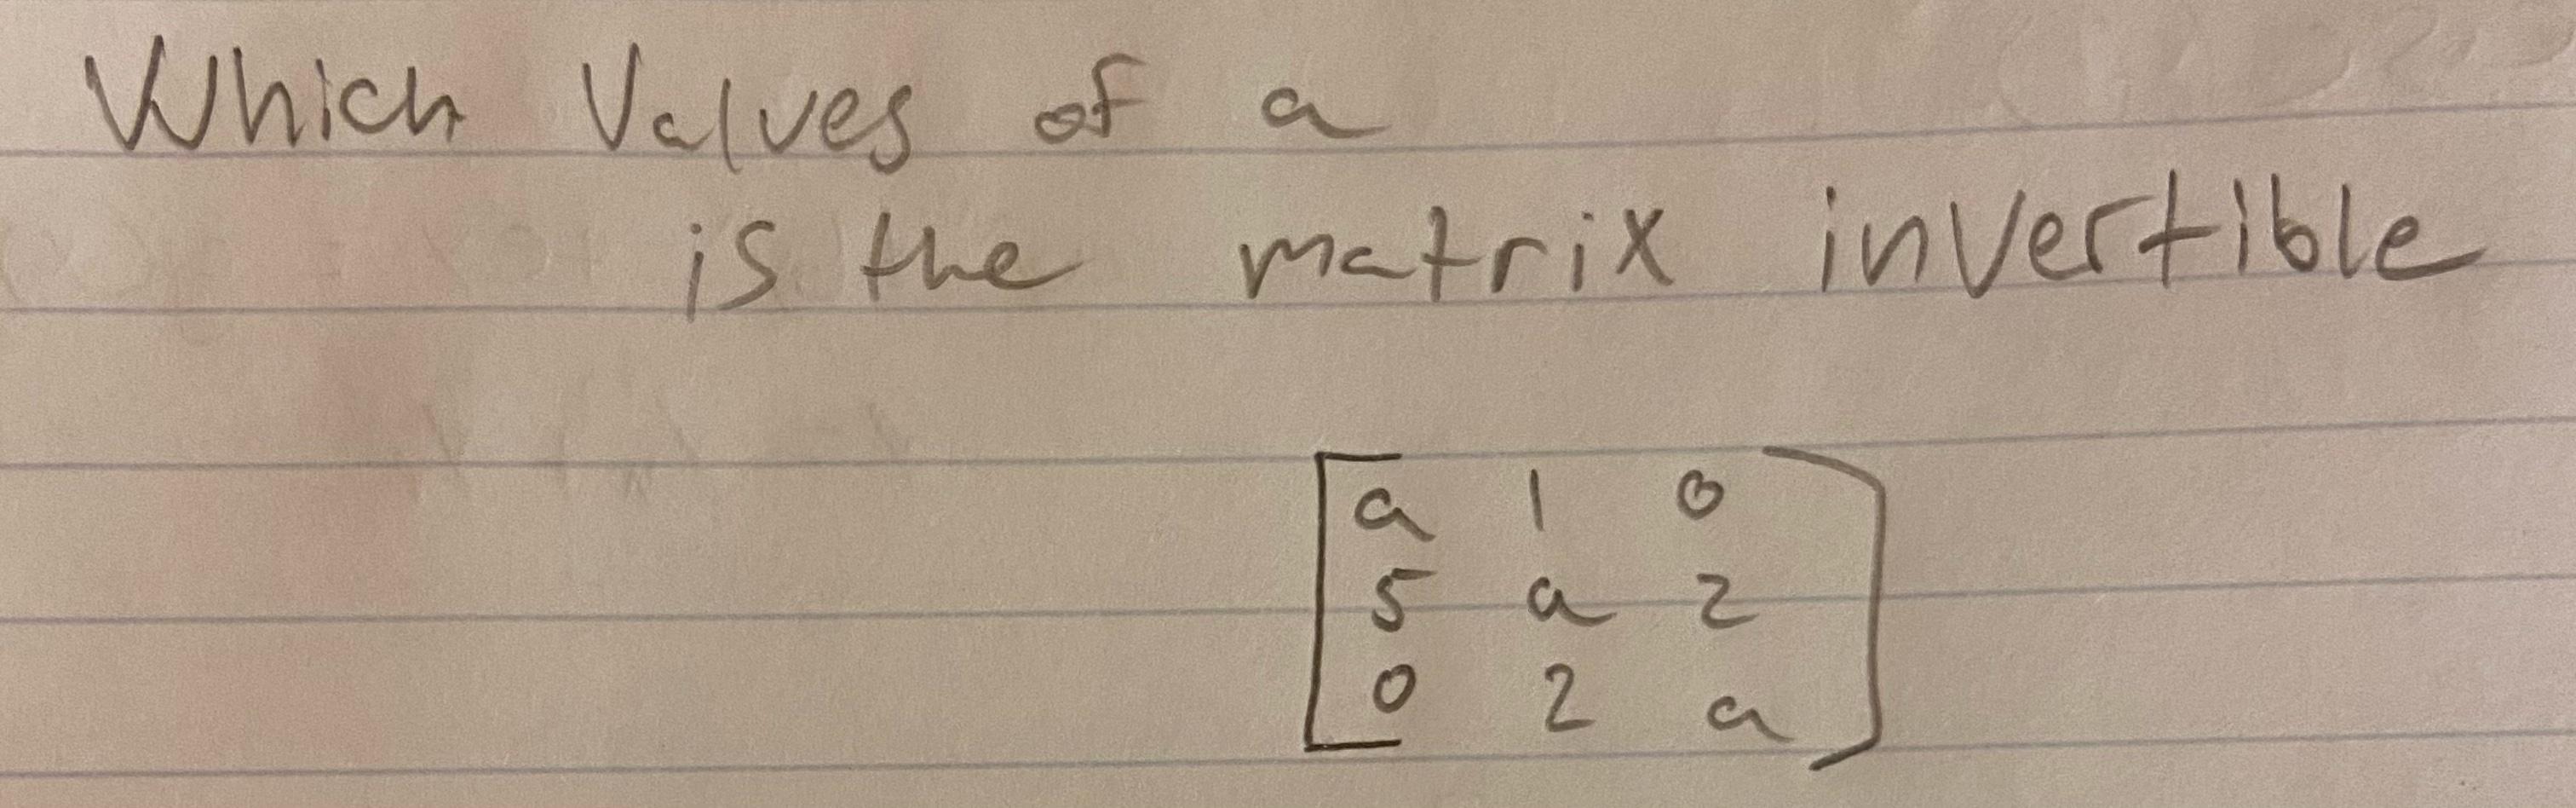 Which Values of a
is the matrix invertible
a 1 0
5 a 2
0 2 a